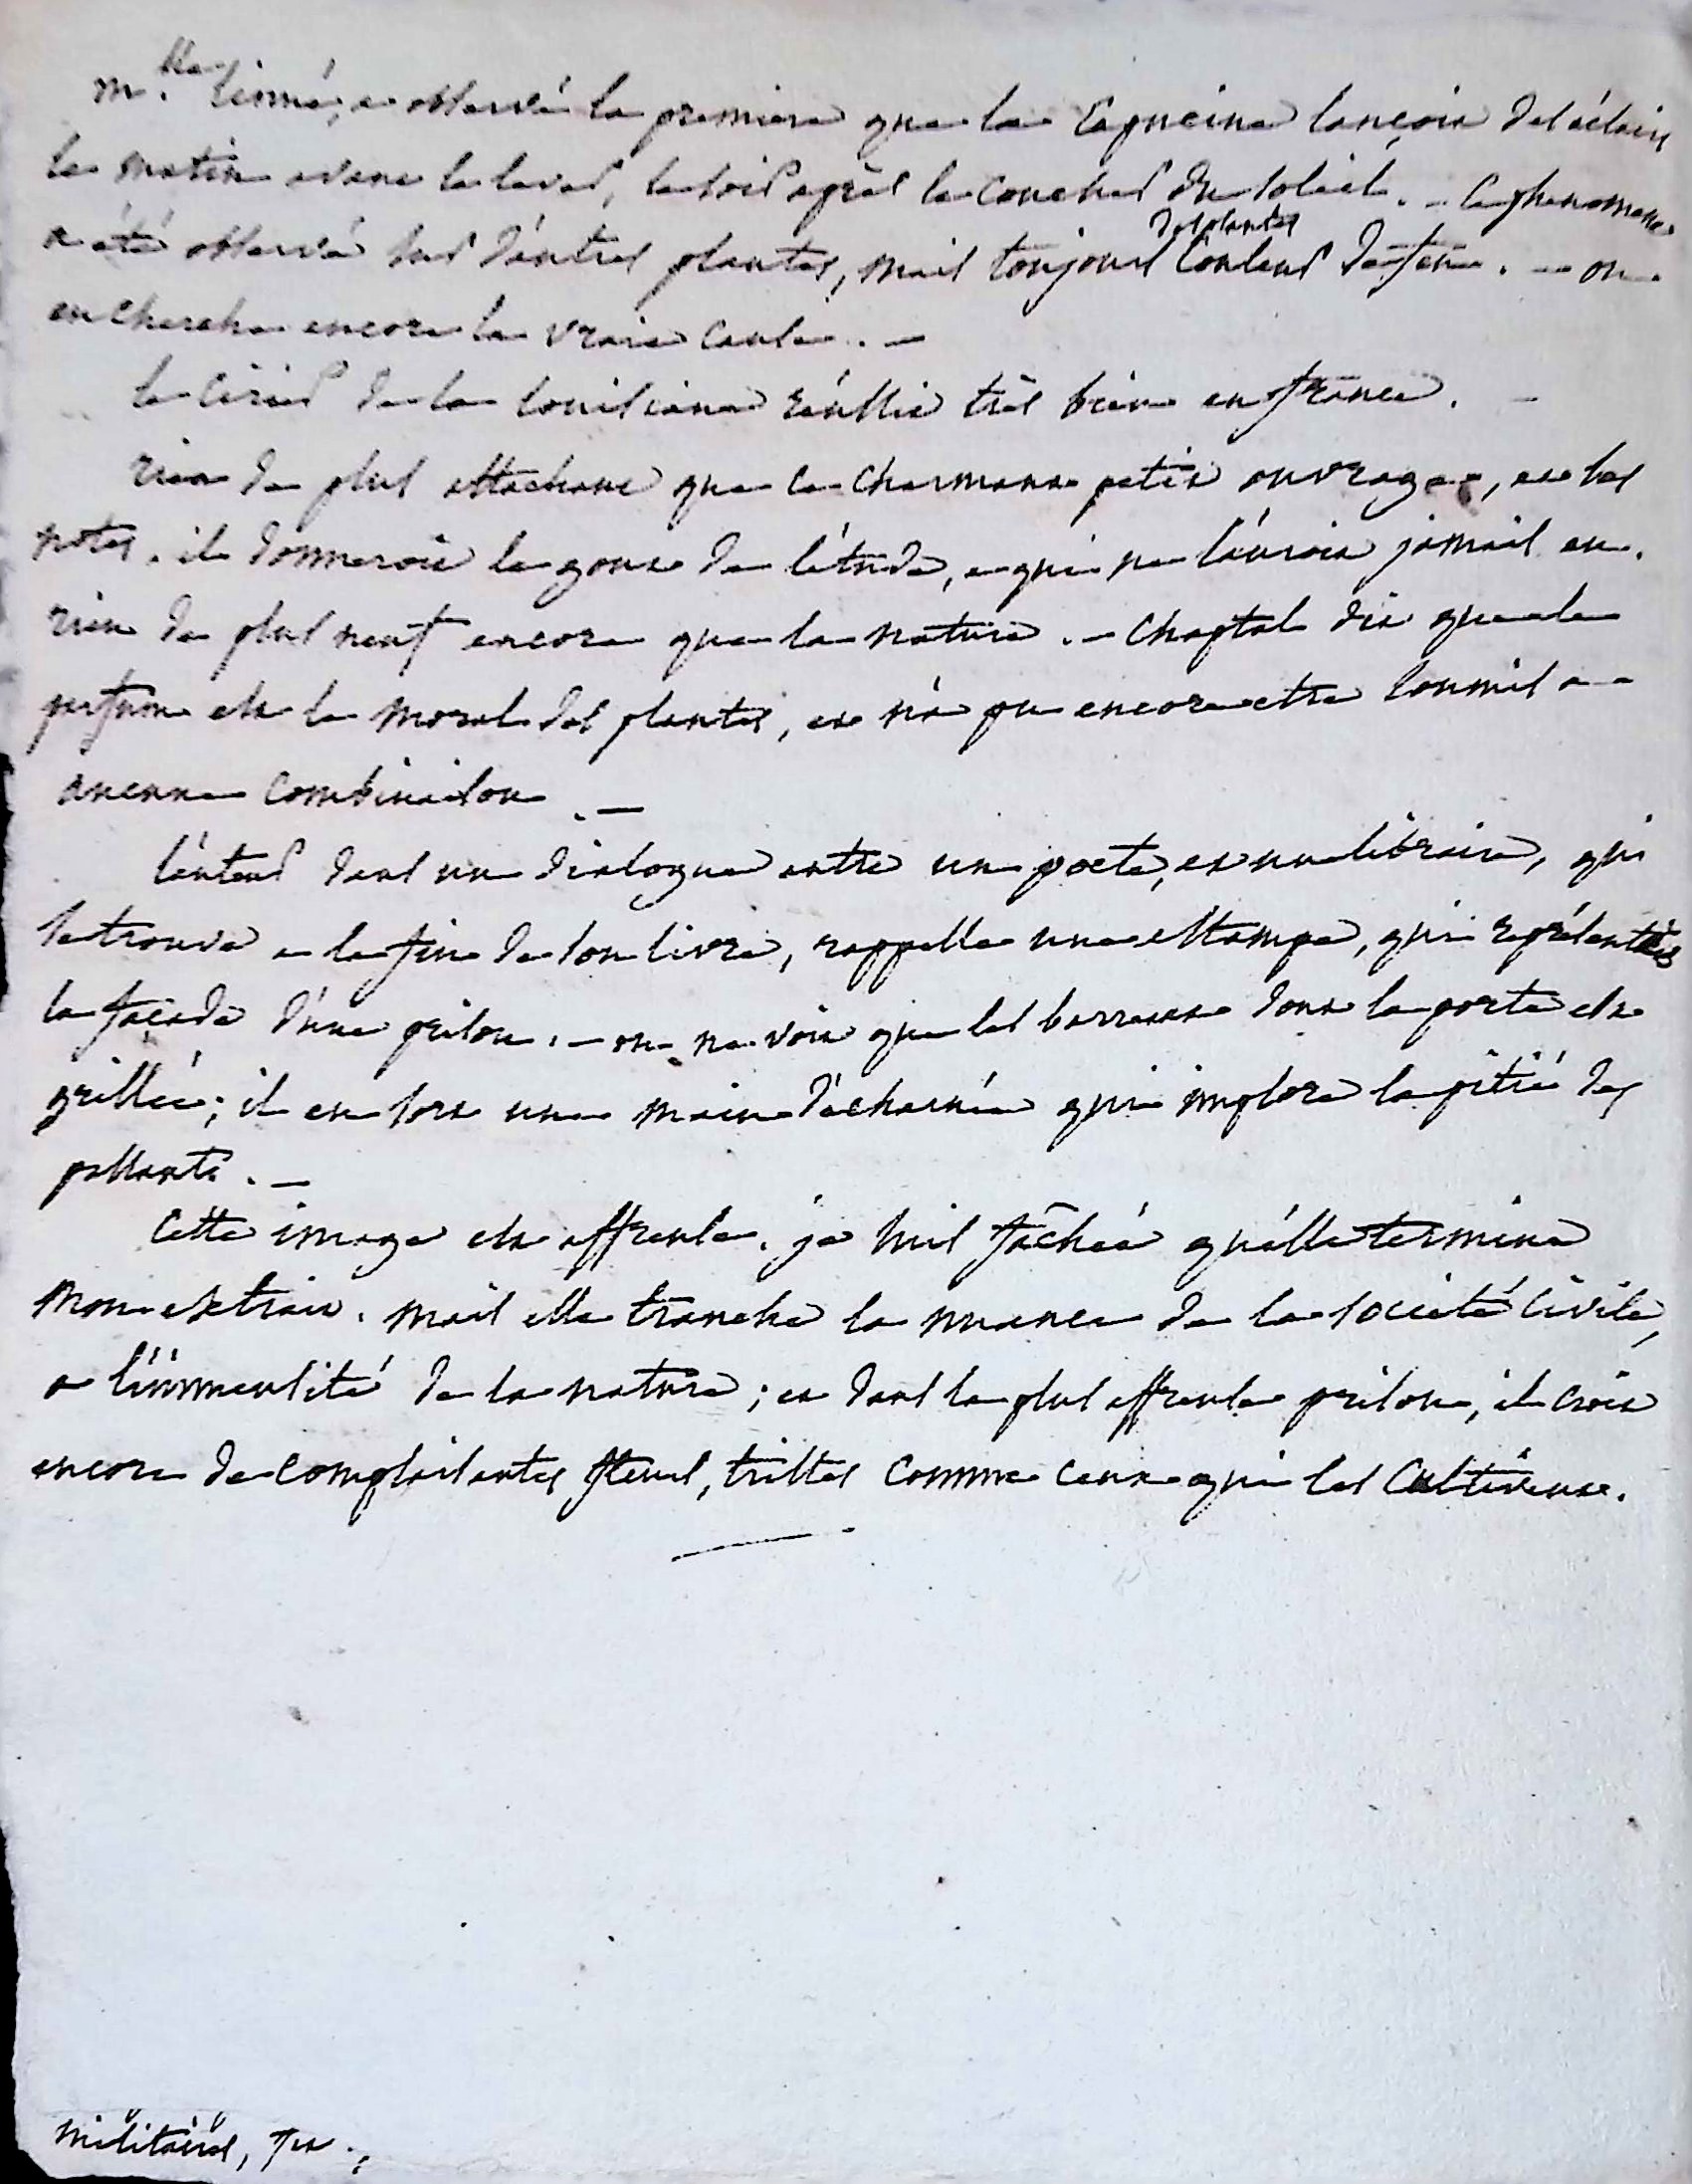 m.lle linné, a observé la premiere que la capucine lançoit des éclairs
le matin avant le lever, le soir après le coucher du soleil. - ce phenomene
a été observé sur d'autres plantes, mais toujours des plantes couleur de feu. - on
en cherche encore la vraie cause. -
le cirier de la louisiane réussit très bien en france. -
rien de plus attachant que ce charmant petit ouvrage, et les
notes. il donneroit le gout de l'étude, a qui ne l'auroit jamais eu.
rien de plus neuf encore que la nature. - chaptal dit que le
parfum est le moral des plantes, et n'a pu encore etre soumis a
aucune combinaison. -
l'auteur dans un dialogue entre un poete, et un libraire, qui
se trouve a la fin de son livre, rappelle une estampe, qui représentait
la façade d'une prison. - on ne voit que les barreaux dont la porte est
grillée; il en sort une main décharnée qui implore la pitié des
passants. -
cette image est affreuse. je suis fâché qu'elle termine
mon extrait. mais elle tranche la nuance de la société civile,
a l'immensité de la nature; et dans la plus affreuse prison, il croit
encore de complaisantes fleurs, tristes comme ceux qui les cultivent.
militaires,